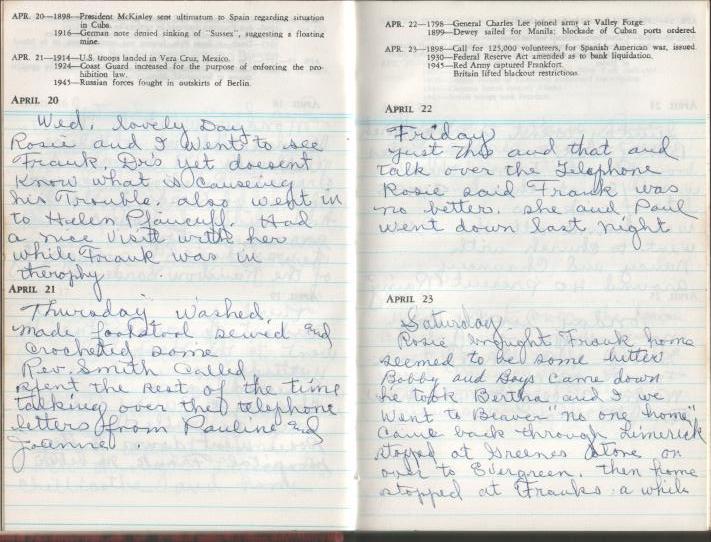 APR. 20—1898—President McKinley sent ultimatum to Spain regarding situation
in Cuba.
1916—German note denied sinking of "Sussex", suggesting a floating
mine.
APR. 21—1914—U.S. troops landed in Vera Cruz, Mexico.
1924—Coast Guard increased for the purpose of enforcing the pro-
hibition law.
1945—Russian forces fought in outskirts of Berlin.
APRIL 20
Wed. lovely Day
Rosie and I went to see
Frank. Dr's yet doesent
know what is causeing
his Trouble. also went in
to Helen
Had
a nice visit with her
while Frank was in
therophy.
APRIL 21
Thursday washed.
made footstool sewed and
crocheted some
Rev. Smith called
spent the rest of the time
talking over the telephone
letters from Pauline and
Joanne.
APR. 22—1798—General Charles Lee joined army at Valley Forge.
1899—Dewey sailed for Manila; blockade of Cuban ports ordered.
APR. 23—1898—Call for 125,000 volunteers, for Spanish American war, issued.
1930—Federal Reserve Act amended as to bank liquidation.
1945—Red Army captured Frankfort.
Britain lifted blackout restrictions.
APRIL 22
Friday
Just This and that and
talk over the Telephone
Rosie said Frank was
no better. she and Paul
went down last night
APRIL 23
Saturday.
Rosie brought Frank home
seemed to be some better
Bobby and Boys came down
he took Bertha and I we
went to Beaver "no one home"
came back through Limerick
stopped at Greenes Store on
over to Evergreen. Then home
stopped at Franks a while